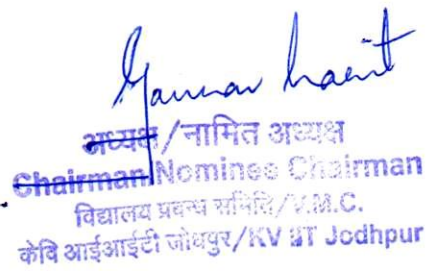 अध्यक्ष/नामित अध्यक्ष
Chairman/Nominee Chairman
विद्यालय प्रबन्ध समिति/V.M.C.
केवि आईआईटी जोधपुर/KV IIT Jodhpur